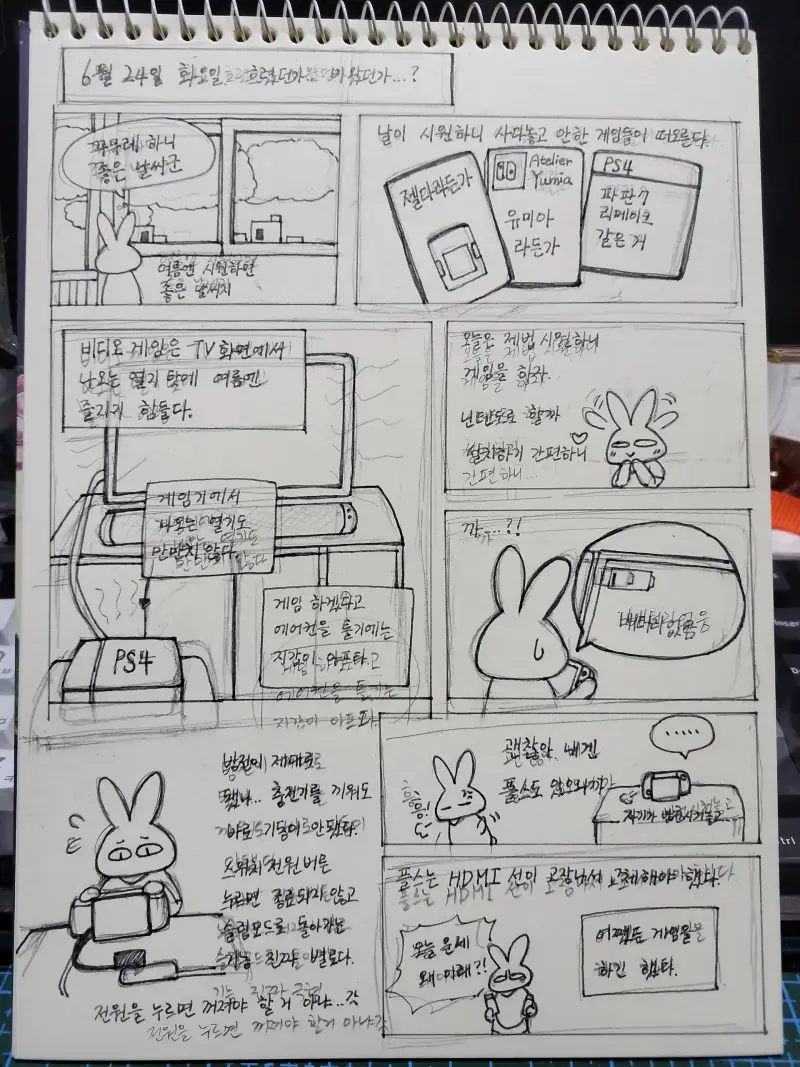 6월 24일 화요일
꾸물레 하니
좋은 날씨군
여름엔 시원하면
좋은 날씨지
날이 시원하니 사다놓고 안한 게임들이 떠오른다.
젤다라든가
Atelier
Yumia
유미아
라든가
PS4
파판7
리메이크
같은 거
비디오 게임은 TV화면에서
나오는 열기 탓에 여름엔
즐기기 힘들다.
게임기에서
나오는 열기도
만만치 않다
PS4
게임 하겠다고
에어컨을 틀기에는
지갑이 아프다고
에어컨을 틀기는
지갑이 아프다.
오늘은 제법 시원하니
게임을 하자.
닌텐도로 할까
설치하기 간편하니
간편하니...
까...?!
배터리없음
방전이 제대로
됐나.. 충전기를 끼워도
바로 안됐다.
스위치 전원버튼
누르면 종료되지 않고
슬립모드로 돌아가는
별로다.
전원을 누르면 꺼져야 할 거 아냐..각
전원을 누르면 꺼져야 할거 아냐각
괜찮아. 내겐
플스도
흥흥!
.....
자기가 방전시켜놓고
플스는 HDMI 선이 고장나서 교체해야했다
플스는 HDMI
오늘 운세
왜 이래?!
어쨌든 게임을
하긴 했다.